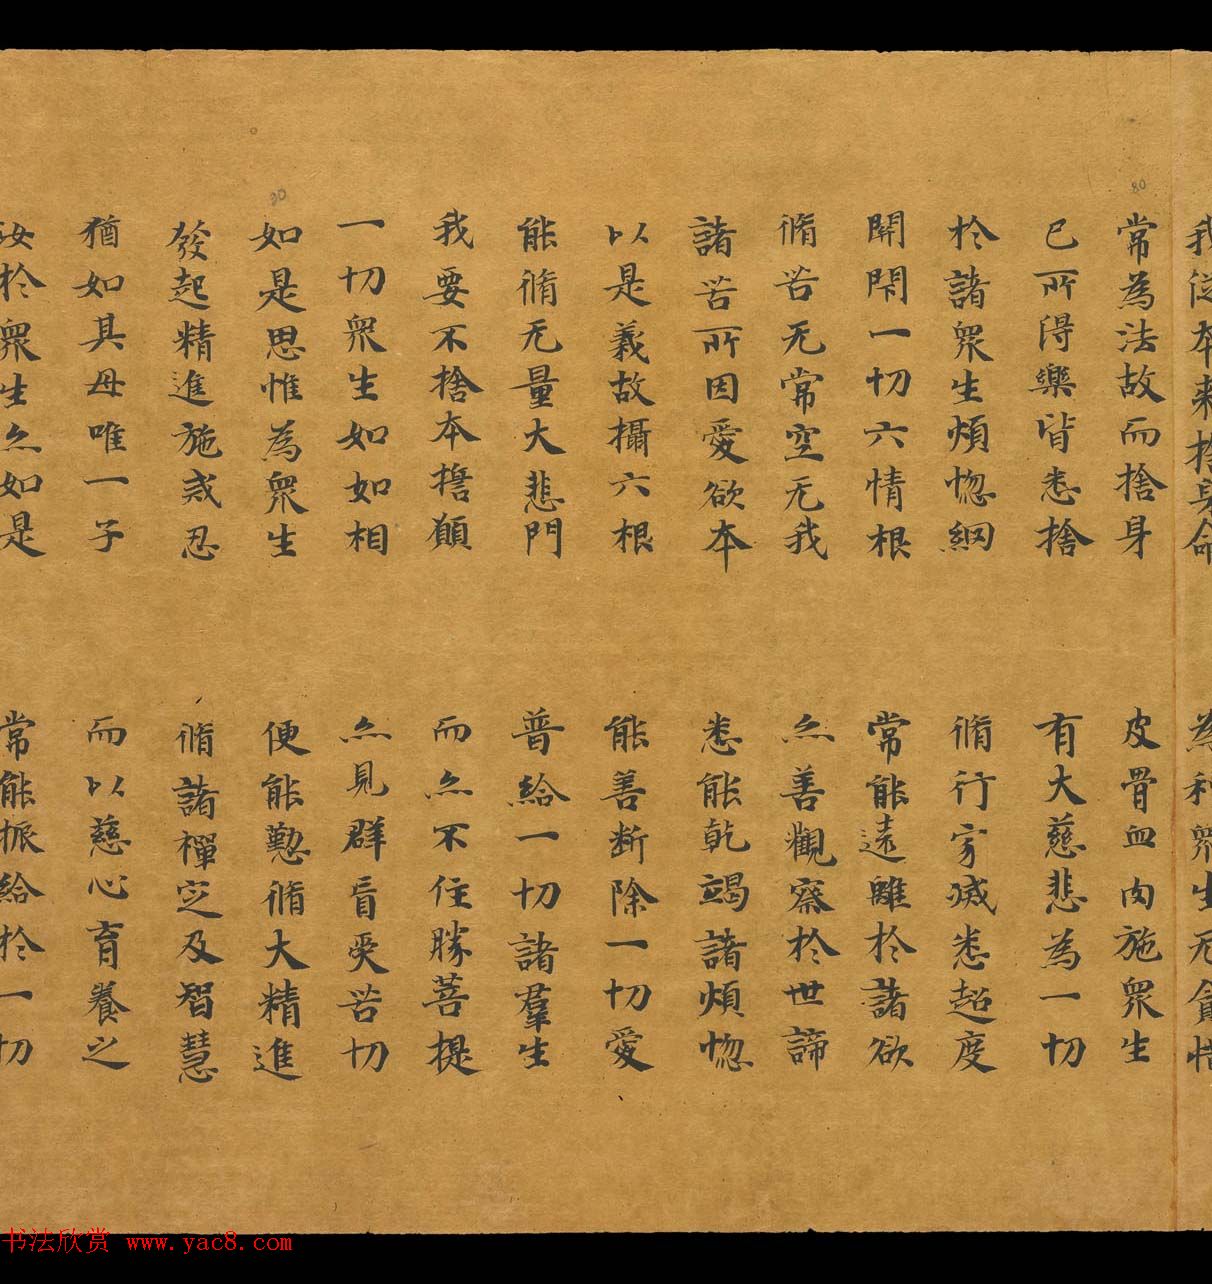 我從本來捨身命　為利衆生无貪惜
常為法故而捨身　皮骨血肉施衆生
已所得樂皆悉捨　有大慈悲為一切
於諸衆生煩惚網　脩行寂滅悉超度
開閇一切六情根　常能遠離於諸欲
脩苦无常空无我　亦善觀察於世諦
諸苦所因愛欲本　悉能乾竭諸煩惚
以是義故攝六根　能善断除一切愛
能脩无量大悲門　普給一切諸羣生
我要不捨本擔願　而亦不住勝菩提
一切衆生如如相　亦見群盲受苦切
如是思惟為衆生　便能懃脩大精進
發起精進施戒忍　脩諸禪定及智慧
猶如其母唯一子　而以慈心育養之
汝於衆生亦如是　常能振給於一切
80
90
书法欣赏 www.yac8.com